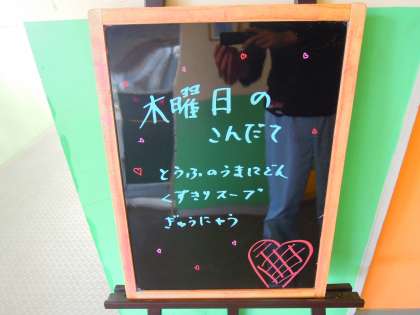 木曜日の
こんだて
とうふのうまにどん
くずきりスープ
ぎゅうにゅう